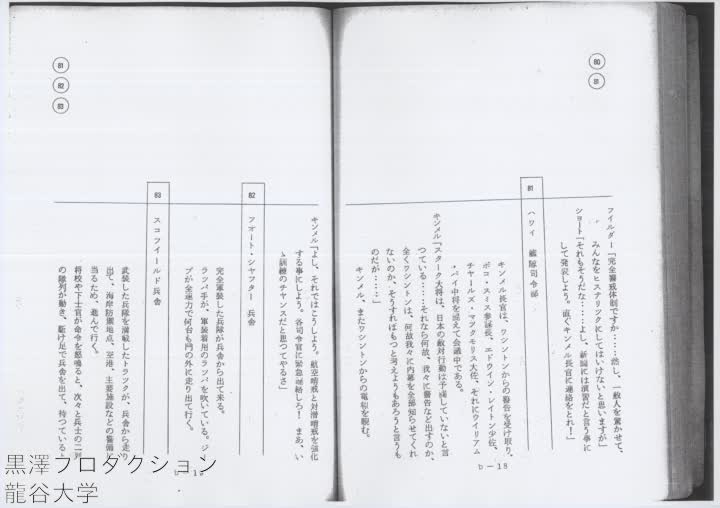 80
81
フイルダー「完全警戒体制ですか……然し、一般人を驚かせて、
みんなをヒステリツクにしてはいけないと思いますが」
ショート「それもそうだな……よし、新聞には演習だと言う事に
して発表しよう。直ぐキンメル長官に連絡をとれ！」
81
ハワイ 艦隊司令部
キンメル長官は、ワシントンからの警告を受け取り、
ポコ・スミス参謀長、エドウイン・レイトン少佐、
チヤールズ・マツクモリス大佐、それにウイリアム
・パイ中将を迎えて会議中である。
キンメル「スターク大将は、日本の敵対行動は予期していないと言
つている……それなら何故、我々に警告など出すのか、
全くワシントンは、何故我々に内幕を全部知らせてくれ
ないのか、そうすればもつと考えようもあろうと言うも
のだが……」
キンメル、またワシントンからの電報を睨む。
b－18
81
82
83
キンメル「よし、それではこうしよう。航空哨戒と対潜哨戒を強化
する事にしよう。各司令官に緊急連絡しろ！ まあ、い
ゝ訓練のチャンスだと思つてやるさ」
82
フオート・シヤフター 兵舎
完全軍装した兵隊が兵舎から出て来る。
ラツパ手が、軍装着用のラツパを吹いている。ジー
プが全速力で何台も門の外に走り出て行く。
83
スコフイールド兵舎
武装した兵隊を満載したトラツクが、兵舎から走り
出て、海岸防備地点、空港、主要施設などの警備に
当るため、進んで行く。
将校や下士官が命令を怒鳴ると、次々と兵士の二列
の隊列が動き、駆け足で兵舎を出て、待つている
b－19
黒澤プロダクション
龍谷大学